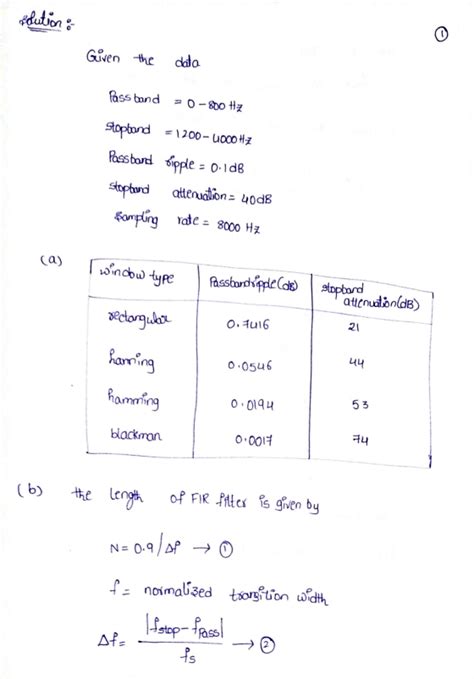 Solution :-
①
Given the data
Passband = 0-800 Hz
stopband = 1200-4000Hz
Passband ripple = 0.1dB
stopband attenuation = 40dB
Sampling rate = 8000 Hz
(a)
window type Passbandripple(dB) stopband
attenuation(dB)
rectangular 0.7416 21
hanning 0.0546 44
hamming 0.0194 53
blackman 0.0017 74
(b) the length of FIR filter is given by
N = 0.9/Δf → ①
f = normalized transition width
Δf = |fstop - fpass| / fs → ②